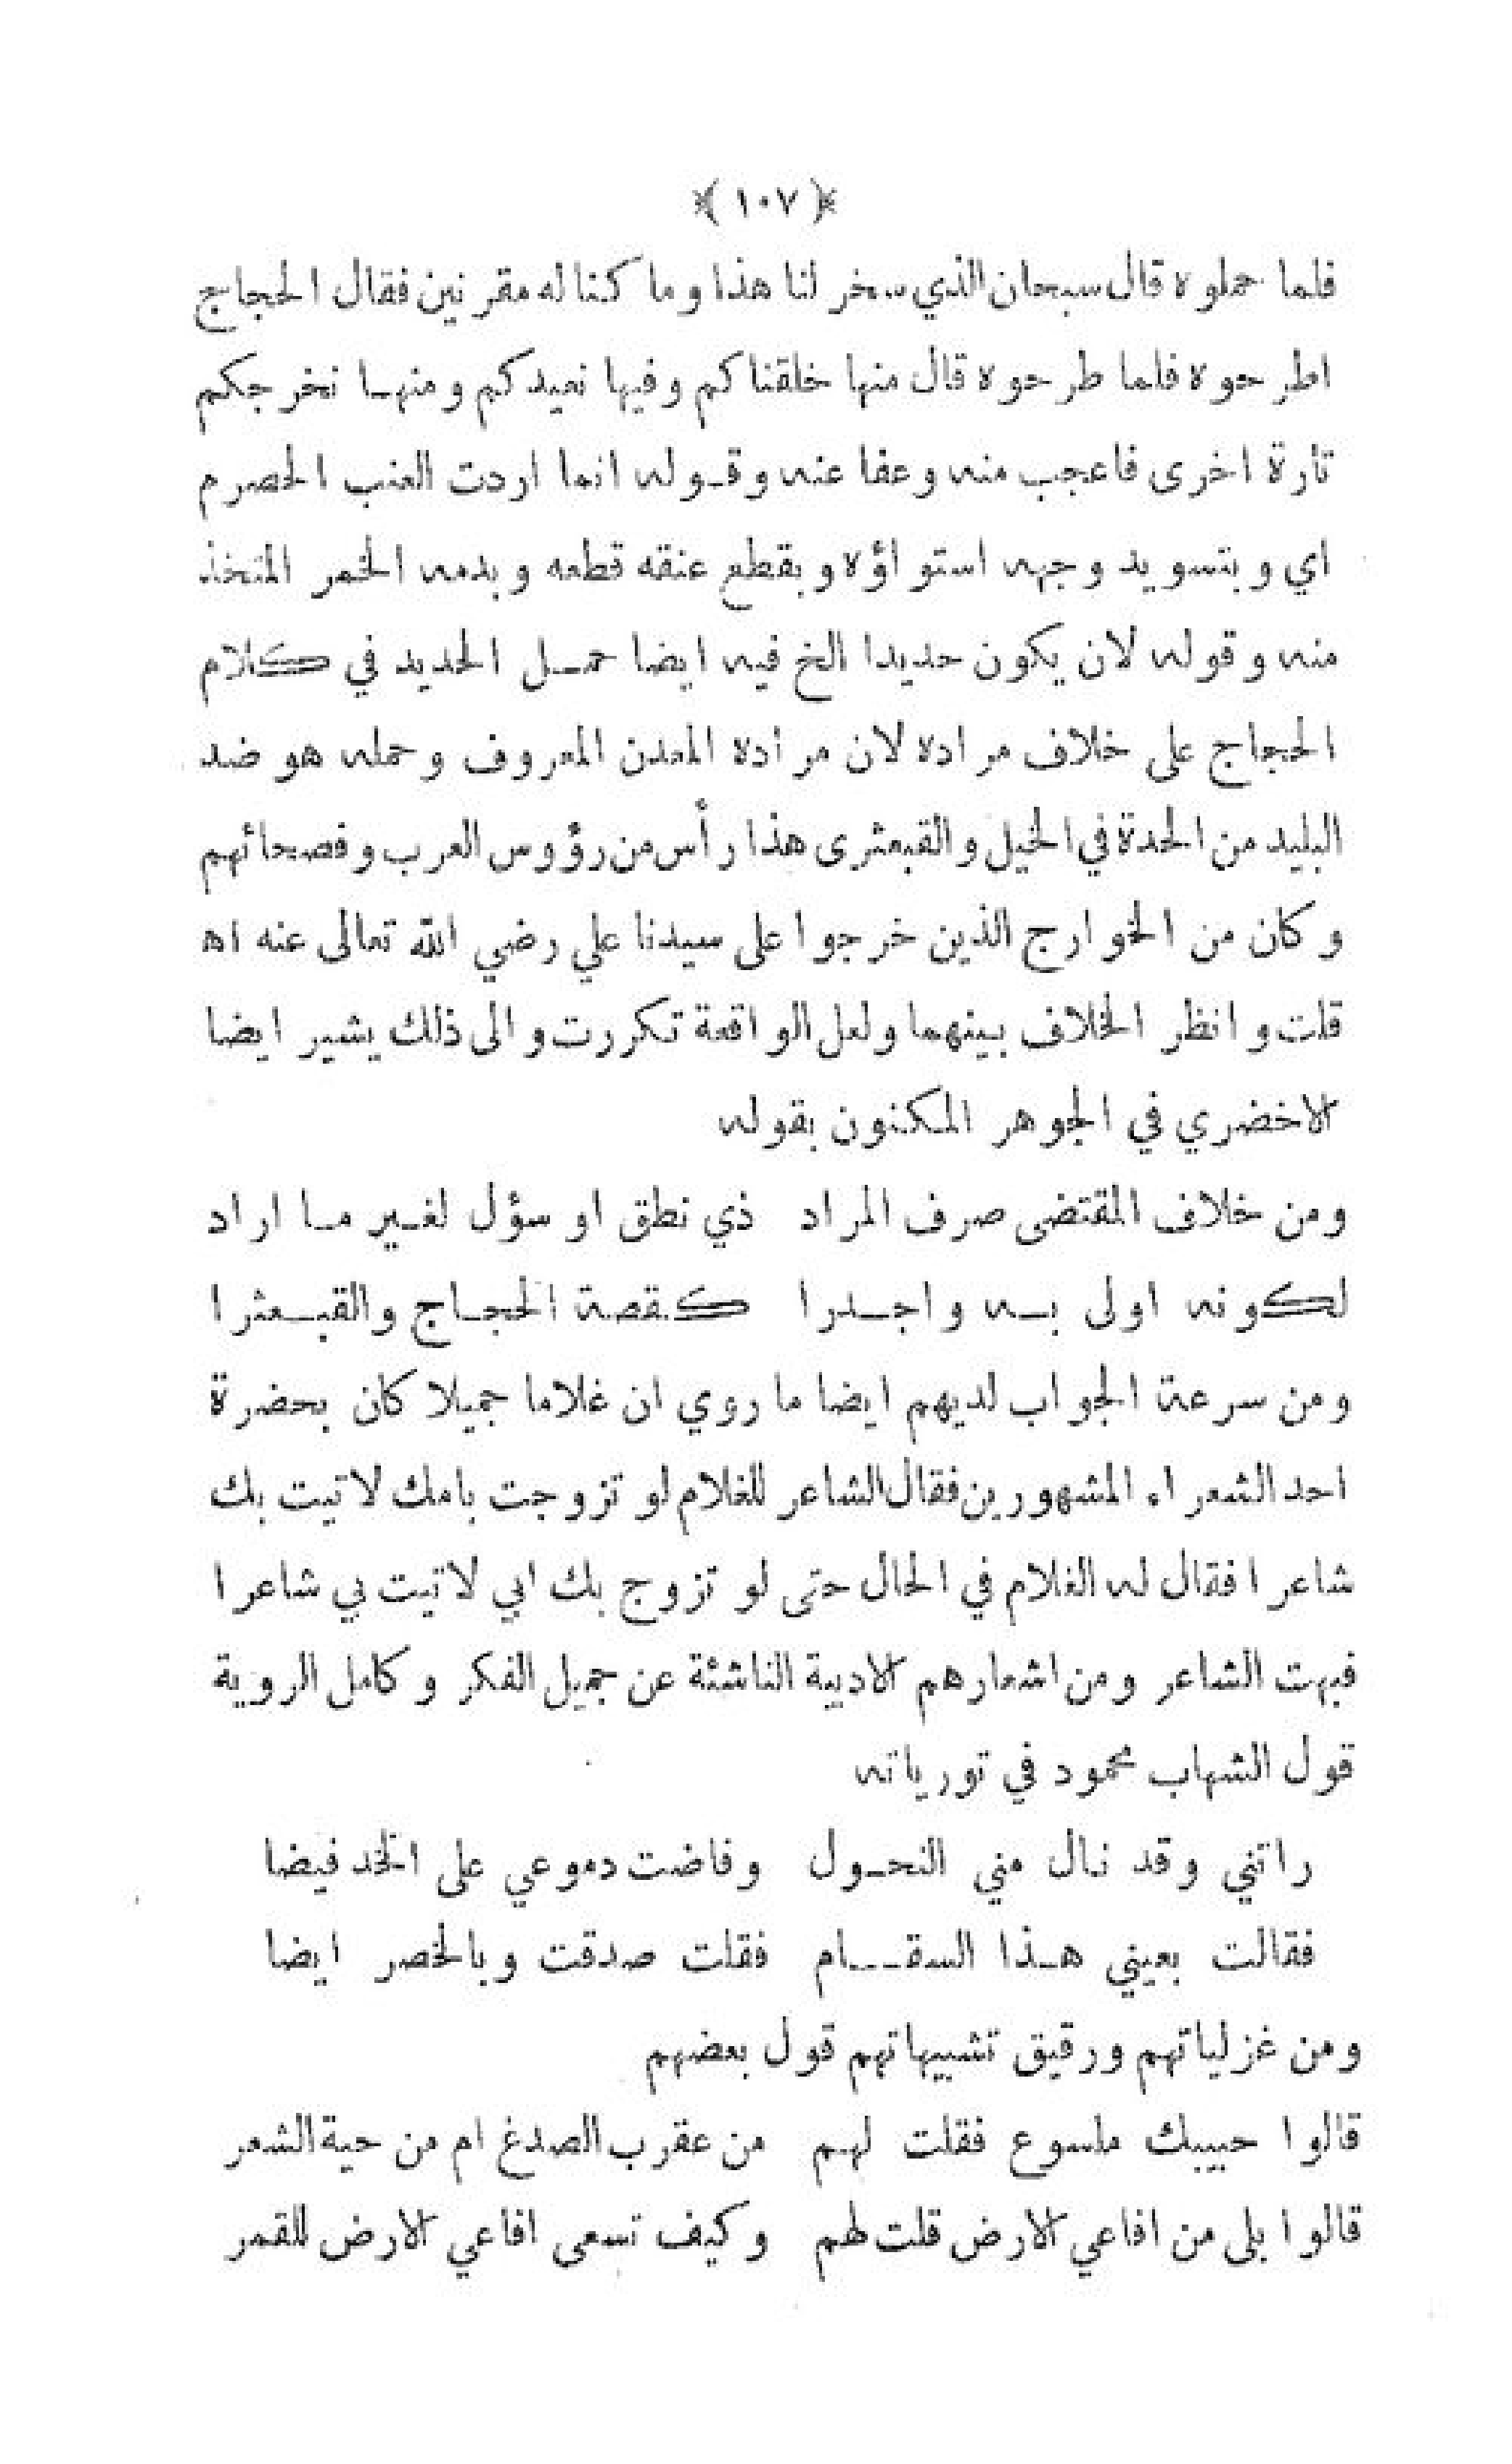 ﴿ ١٠٧ ﴾
فلما حملوه قال سبحان الذي سخر لنا هذا وما كنا له مقرنين فقال الحجاج
اطرحوه فلما طرحوه قال منها خلقناكم وفيها نعيدكم ومنها نخرجكم
تارة اخرى فاعجب منه وعفا عنه وقوله انما اردت العنب الحصرم
اي وبتسويد وجهه استواؤه وبقطع عنقه قطعه وبدمه الخمر المتخذ
منه وقوله لان يكون حديدا الخ فيه ايضا حمل الحديد في كلام
الحجاج على خلاف مراده لان مراده المعدن المعروف وحمله هو ضد
البليد من الحدة في الخيل والقبعثرى هذا رأس من رؤوس العرب وفصحائهم
وكان من الخوارج الذين خرجوا على سيدنا علي رضي الله تعالى عنه اه
قلت وانظر الخلاف بينهما ولعل الواقعة تكررت والى ذلك يشير ايضا
الاخضري في الجوهر المكنون بقوله
ومن خلاف المقتضى صرف المراد ذي نطق او سؤل لغير ما اراد
لكونه اولى به واجدرا كقصة الحجاج والقبعثرا
ومن سرعة الجواب لديهم ايضا ما روي ان غلاما جميلا كان بحضرة
احد الشعراء المشهورين فقال الشاعر للغلام لو تزوجت بامك لاتيت بك
شاعرا فقال له الغلام في الحال حتى لو تزوج بك ابي لاتيت بي شاعرا
فبهت الشاعر ومن اشعارهم الادبية الناشئة عن جميل الفكر وكامل الروية
قول الشهاب محمود في تورياته
راتني وقد نال مني النحول وفاضت دموعي على الخد فيضا
فقالت بعيني هذا السقام فقلت صدقت وبالخصر ايضا
ومن غزلياتهم ورقيق تشبيهاتهم قول بعضهم
قالوا حبيبك ملسوع فقلت لهم من عقرب الصدغ ام من حية الشعر
قالوا بلى من افاعي الارض قلت لهم وكيف تسعى افاعي الارض للقمر